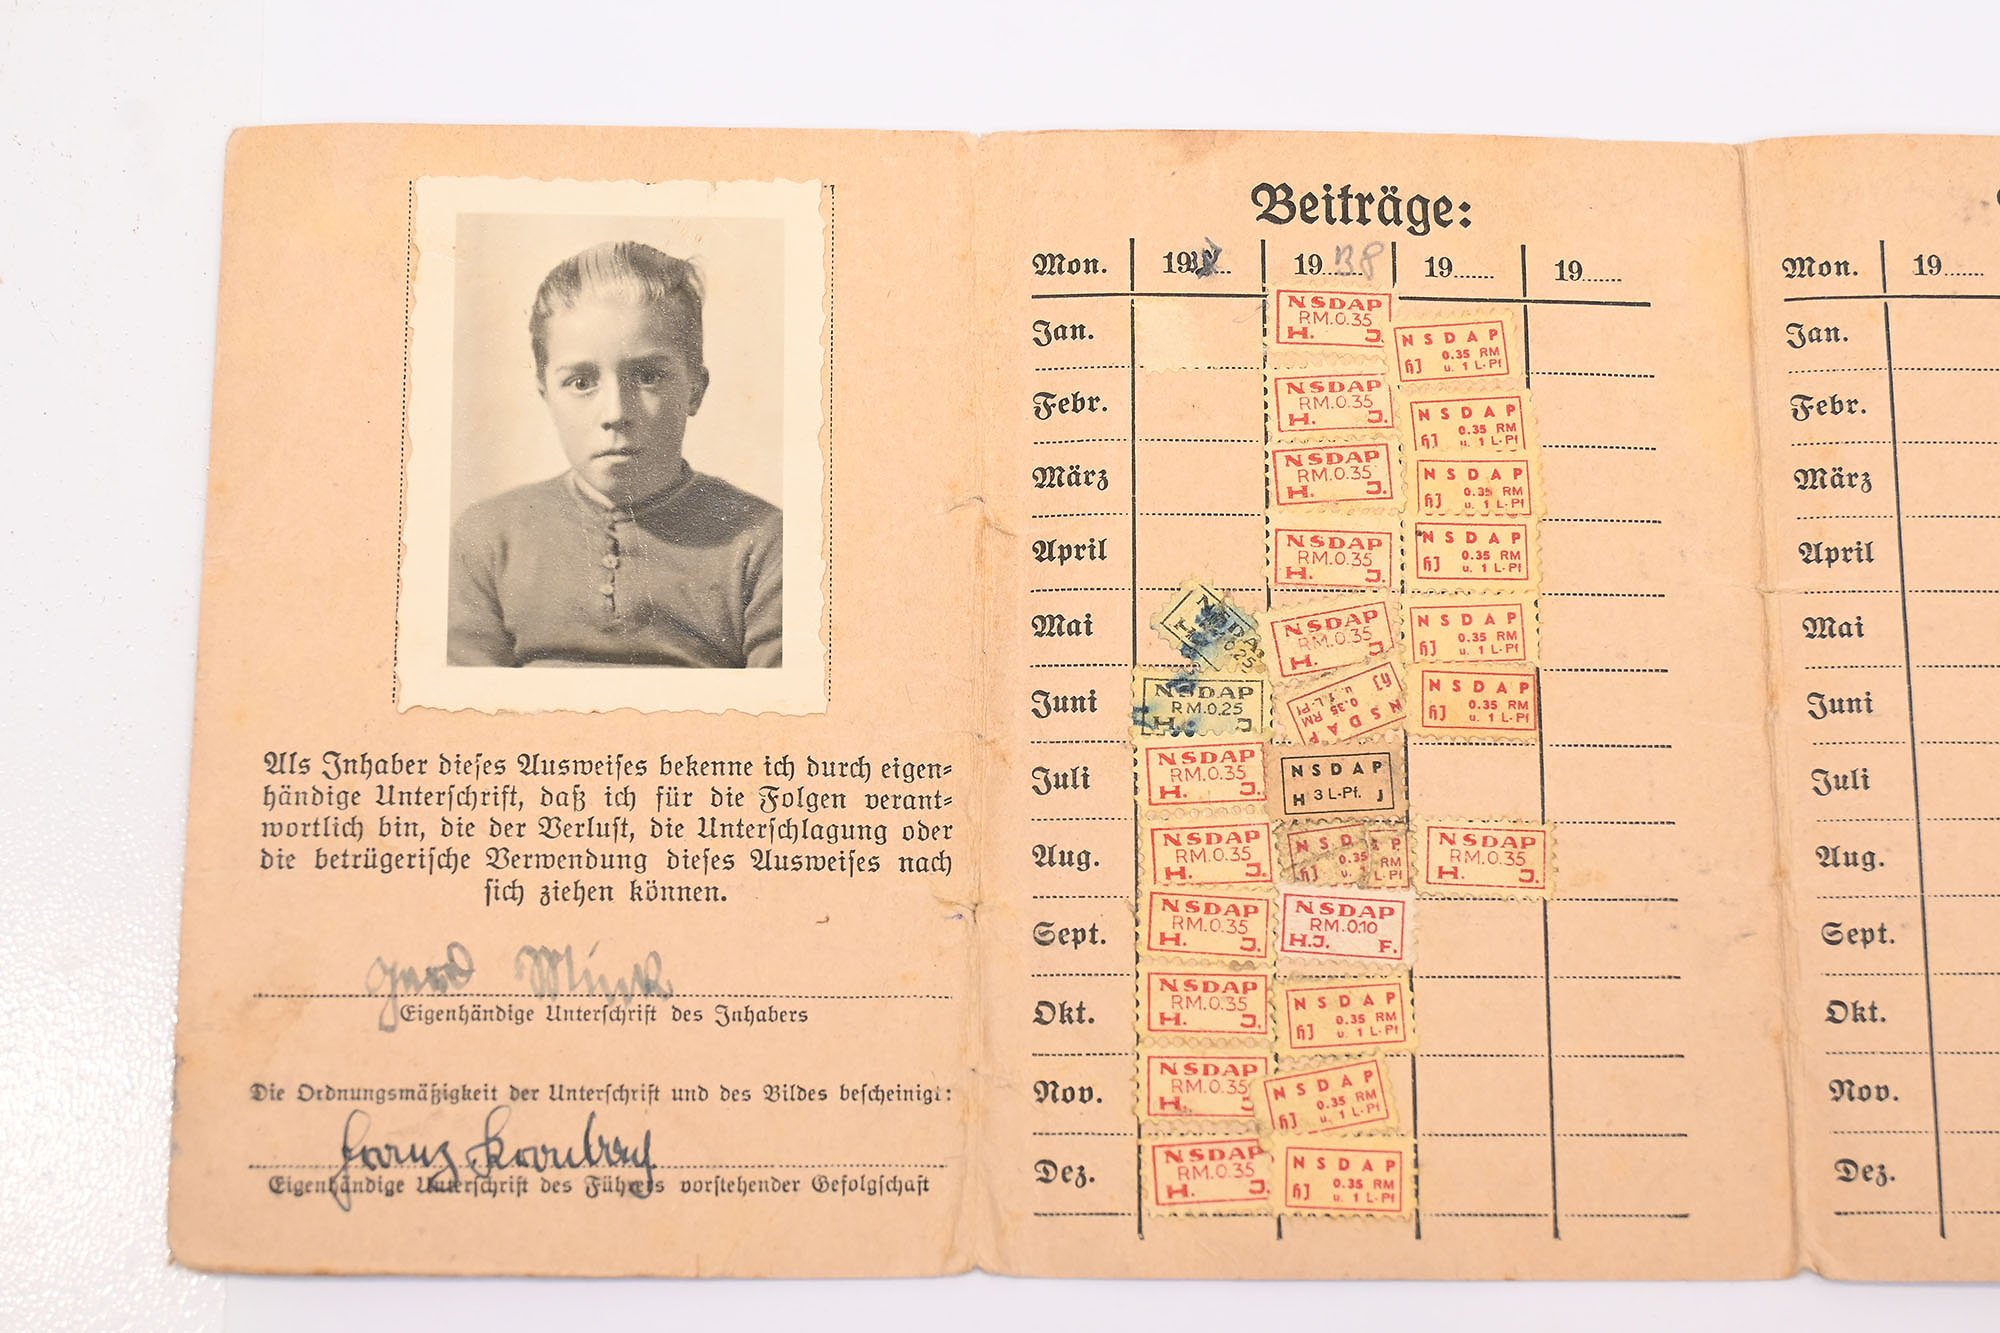 Als Inhaber dieses Ausweises bekenne ich durch eigen=
händige Unterschrift, daß ich für die Folgen verant=
wortlich bin, die der Verlust, die Unterschlagung oder
die betrügerische Verwendung dieses Ausweises nach
sich ziehen können.
Gerd
Eigenhändige Unterschrift des Inhabers
Die Ordnungsmäßigkeit der Unterschrift und des Bildes bescheinigt:
Franz
Eigenhändige Unterschrift des Führers vorstehender Gefolgschaft
Beiträge:
Mon. 19 19 38 19 19
Jan.
NSDAP
RM.0.35
H. J.
NSDAP
0.35 RM
HJ u. 1 L-Pf
Febr.
NSDAP
RM.0.35
H. J.
NSDAP
0.35 RM
HJ u. 1 L-Pf
März
NSDAP
RM.0.35
H. J.
NSDAP
0.35 RM
HJ u. 1 L-Pf
April
NSDAP
RM.0.35
H. J.
NSDAP
0.35 RM
HJ u. 1 L-Pf
Mai
NSDAP
RM.0.35
H. J.
NSDAP
0.35 RM
HJ u. 1 L-Pf
Juni
NSDAP
RM.0.25
H. J
NSDAP
0.35 RM
HJ u. 1 L-Pf
NSDAP
0.35 RM
HJ u. 1 L-Pf
Juli
NSDAP
RM.0.35
H. J.
NSDAP
H 3 L-Pf. J
Aug.
NSDAP
RM.0.35
H. J.
NSDAP
RM.0.35
H. J.
Sept.
NSDAP
RM.0.35
H. J.
NSDAP
RM.0.10
H.J. F.
Okt.
NSDAP
RM.0.35
H. J.
NSDAP
0.35 RM
HJ u. 1 L-Pf
Nov.
NSDAP
RM.0.35
H. J
NSDAP
0.35 RM
HJ u. 1 L-Pf
Dez.
NSDAP
RM.0.35
H. J.
NSDAP
0.35 RM
HJ u. 1 L-Pf
Mon. 19
Jan.
Febr.
März
April
Mai
Juni
Juli
Aug.
Sept.
Okt.
Nov.
Dez.